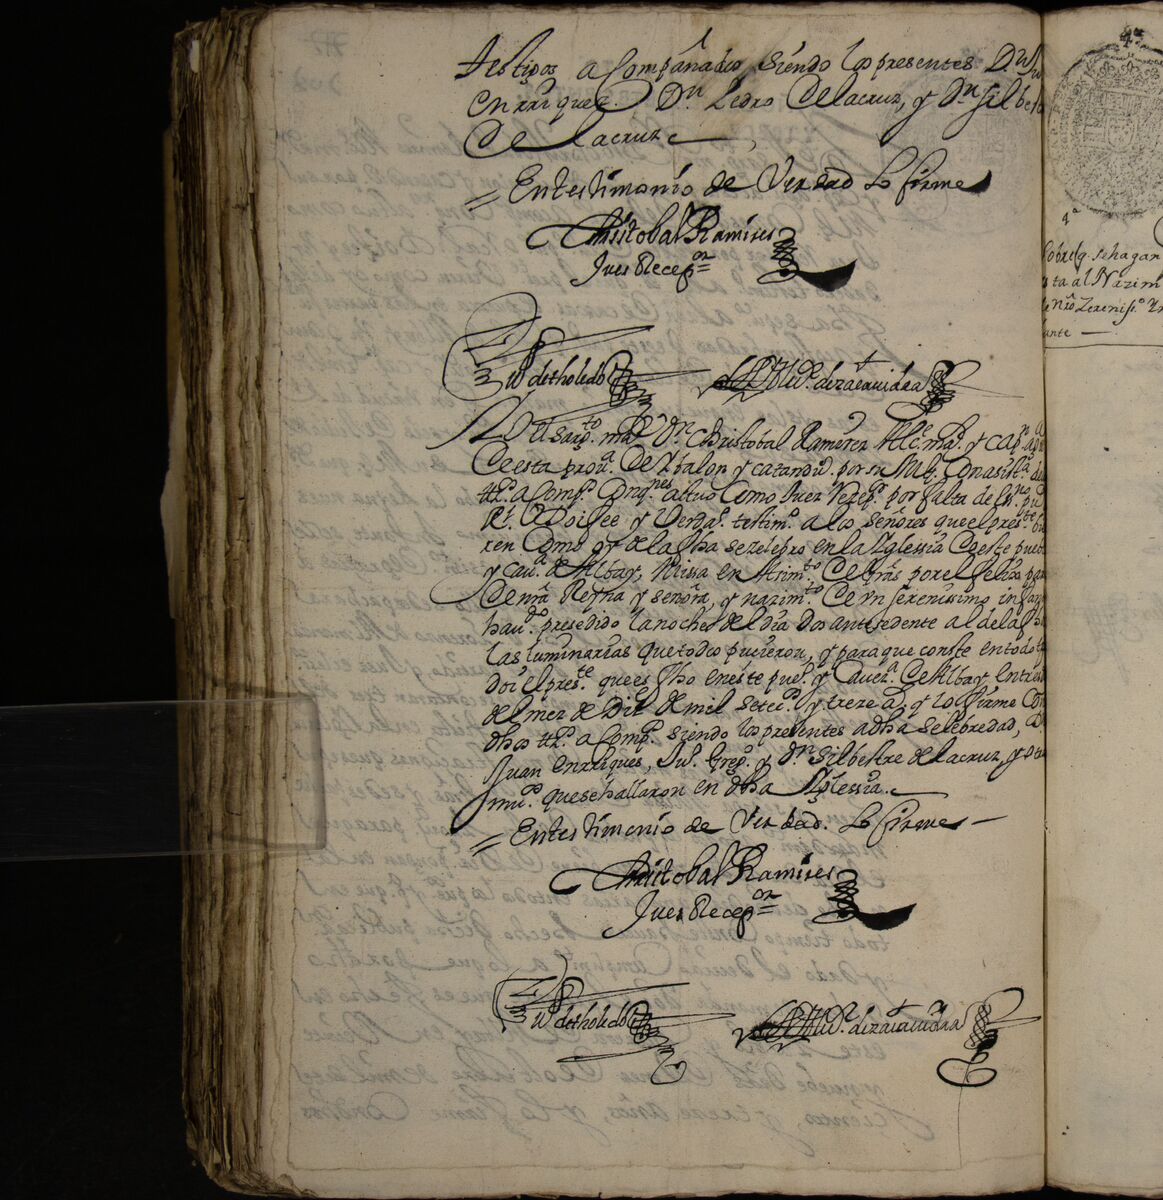 testigos acompañados siendo los presentes Dn Ju
enrriquez. Dn Pedro Delacruz, y Dn silbes
De lacruz
= En testimonio de Verdad Lo firme
Christobal Ramires
Jues Recepor
de tholedo
El sargto. maor Dn Christobal Ramirez Alce. mar. y capn
De esta prova. De Ybalon y catandus. por su Magd. Con asista. de
ttos. acompos. Conquenes actuo Como Juez Rezepr por falta de Esno pu
Rl. Doi fee y Verdo. testimo. a los señores que el preste. vie
ren Como oy dela fha se zelebro en la Yglessia De este pueblo
y cava. de Albay, Missa en Haimto. De Gras por el feliza par
De nra Reyna y señora, y nazimto. De vn serenissimo infan
havdo presedido la noche del dia dos antesedente al dela fha
las luminarias que todos pucieron, y para que conste en todo t
doi el preste. que es fho en este pueo. y Cavera. De Albay, en tre
del mes de Dize. de mil setecos. y treze as. y lo firme Con
dhos ttos. acompos. siendo los presentes a dha selebredad, D.
Juan enrriques, Ju. Grego. y Dn silbestre de lacruz, y otro
mus. que se hallaron en dha Yglessia.
= En testimonio de Verdad. Lo firme
Christobal Ramires
Jues Recepor
de tholedo
4a
4a
sobre q. se hagan
sta al Nazim
de nro Zerenisso. Yn
ante